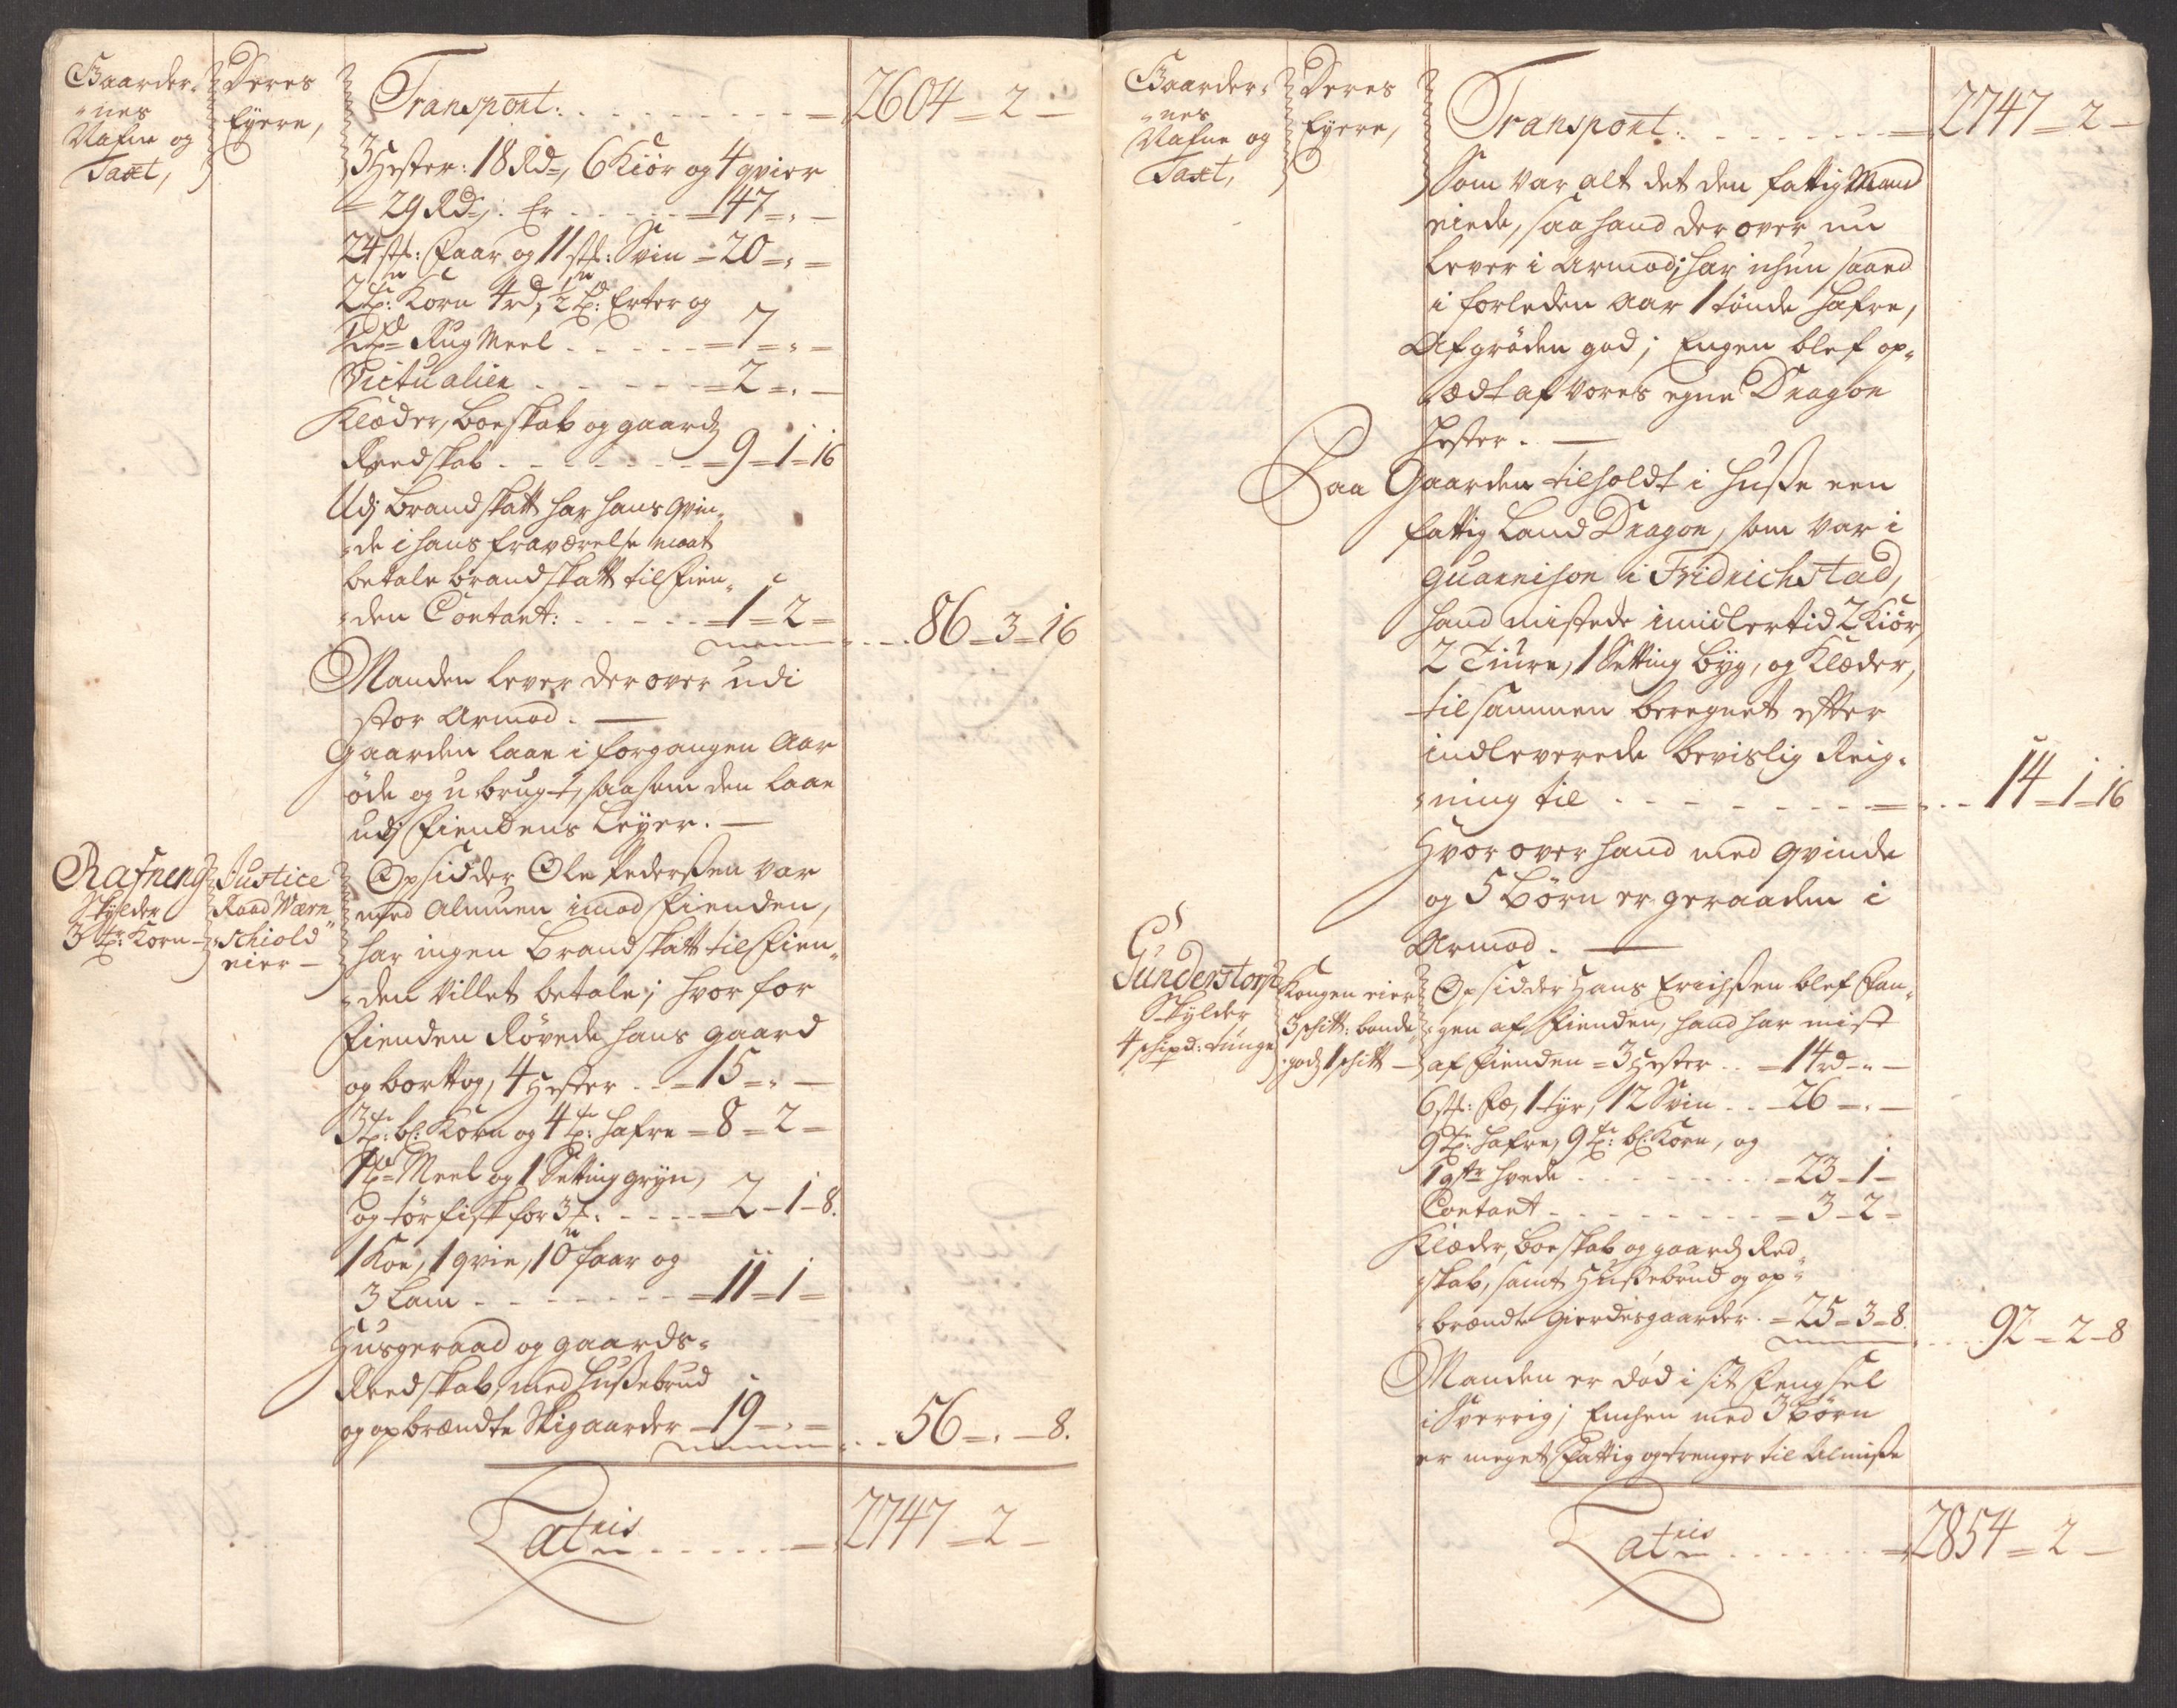 Gaarder-
nes
Nafne og
Taxt,
Deres
Eyere,
Transport: 2604 = 2 -
3 Hester: 18 Rd=, 6 Kiör og 4 qvier
= 29 Rd=,: Er - - - 47 = " -
24 stk: Faar og 11 stk: Svin = 20 = " =
2 tr: Korn 4 rd, ½ tr: Erter og
½ tr= Rug Meel - - - 7 = " =
Victualier - - - 2 = " -
Klæder, boeskab og gaards
Reedskab - - - 9 = 1 = 16
Udj brandskatt har hans qvin-
de i hans fraværelse maat
betale brandskatt til Fien-
den Contant: - - - 1 = 2 =
86 = 3 = 16
Manden lever der over udi
stor Armod. —
Gaarden laae i forgangen Aar
öde og u brugt, saasom den laae
udj Fiendens Leyer. —
Rafneng
Skylder
3 tr: Korn -
Justice
Raad Wærn-
schiold
eier -
Opsidder Ole Pederssen var
med Almuen imod Fienden,
har ingen Brandskatt til Fien-
den villet betale; hvor for
Fienden Rövede hans gaard
og borttog, 4 Hester - - 15 = " -
3 tr: bl: Korn og 4 tr: Hafre = 8 = 2 =
1 tr= Meel og 1 Setting gryn,
og tör fisk for 3 - - - 2 - 1 - 8.
1 Koe, 1 qvie, 10 Faar og
3 Lam - - - 11 = 1 =
Husgeraad og gaards-
Reedskab, med Hussebrud
og opbrændte Skigaarder - 19 - " =
56 = " - 8.
Lateris - - - 2747 = 2 -
Gaarder-
nes
Nafne og
Taxt,
Deres
Eyere,
Transport: 2747 = 2 -
Som var alt det den fattig Mand
eiede, saa hand der over nu
lever i Armod; har ichun saaed
i forleden Aar 1 tönde Hafre,
Afgröden god; Engen blef op-
ædt af vores egne Dragon
Hester. —
Paa Gaarden tilholdt i Husse een
fattig Land Dragon, som var i
Guarnison i Fridrichstad,
hand mistede imidlertid 2 Kiör,
2 Tiure, 1 Setting byg, og Klæder,
tilsammen beregnet efter
indleverede bevislig Reig-
ning til - - - 14 = 1 = 16
Hvor over hand med qvinde
og 5 börn er geraaden i
Armod. —
Gunderstorp
Skylder
4 schipd: tunge
Kongen eier
3 schilt: bonde-
gods 1 schilt -
Opsidder Hans Erichssen blef fan-
gen af Fienden, hand har mist
af Fienden = 3 Hester - - 14 rd - " -
6 stk: Fæ, 1 tyr, 12 Svin - - 26 = " -
9 tr: Hafre, 9 tr: bl: Korn, og
1 qtr Hvede - - - 23 - 1 -
Contant - - - 3 - 2 =
Klæder, boeskab og gaards Red-
skab, samt Hussebrud og op-
brændte gierdesgaarder - 25 = 3 = 8.
92 = 2 - 8
Manden er död i sit Fengsel
i Sverrig; Enchen med 3 börn
er meget Fattig og trenger til Almisse
Lateris - - - 2854 = 2 -